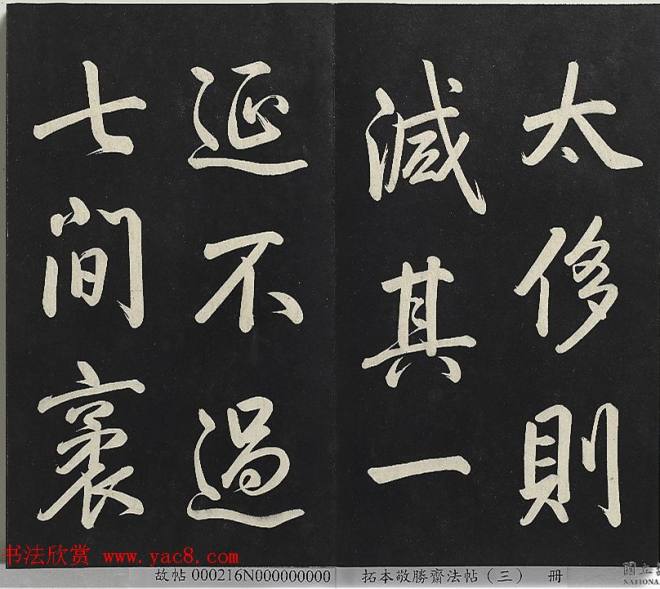 太侈則
減其一
延不過
七間袤
书法欣赏 www.yac8.com
故帖 000216N000000000
拓本敬勝齋法帖（三） 冊
NATIONA